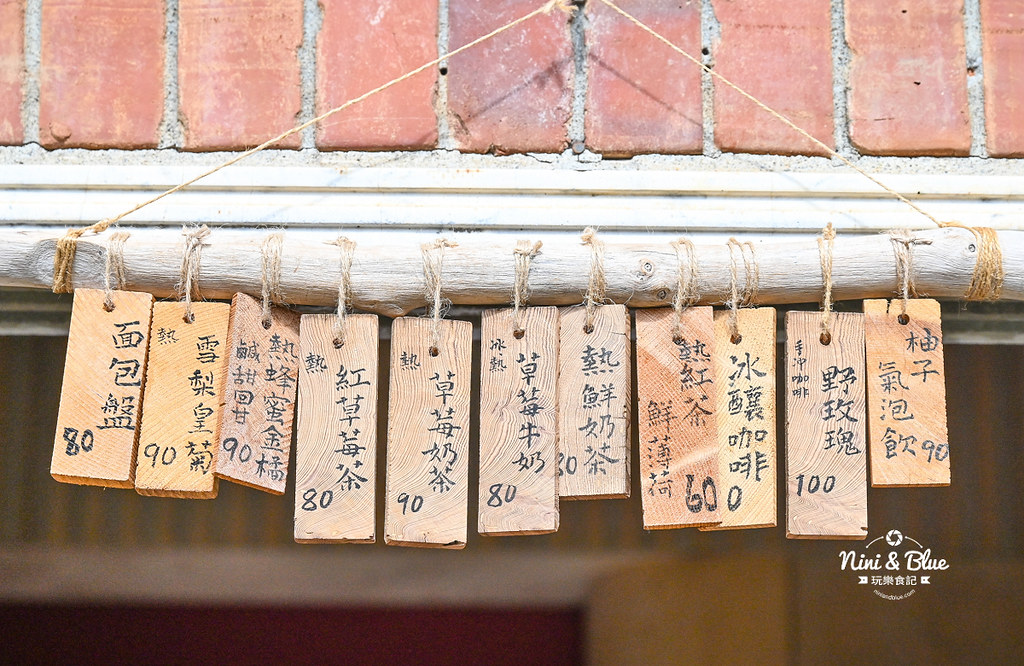 面包盤
80
熱
雪梨皇菊
90
熱蜂蜜金橘
鹹甜回甘
90
熱
紅草莓茶
80
熱
草莓奶茶
90
冰熱
草莓牛奶
80
熱鮮奶茶
80
熱紅茶
鮮薄荷
60
冰釀咖啡
0
手沖咖啡
野玫瑰
100
柚子
氣泡飲
90
Nini & Blue
玩樂食記
niniandblue.com